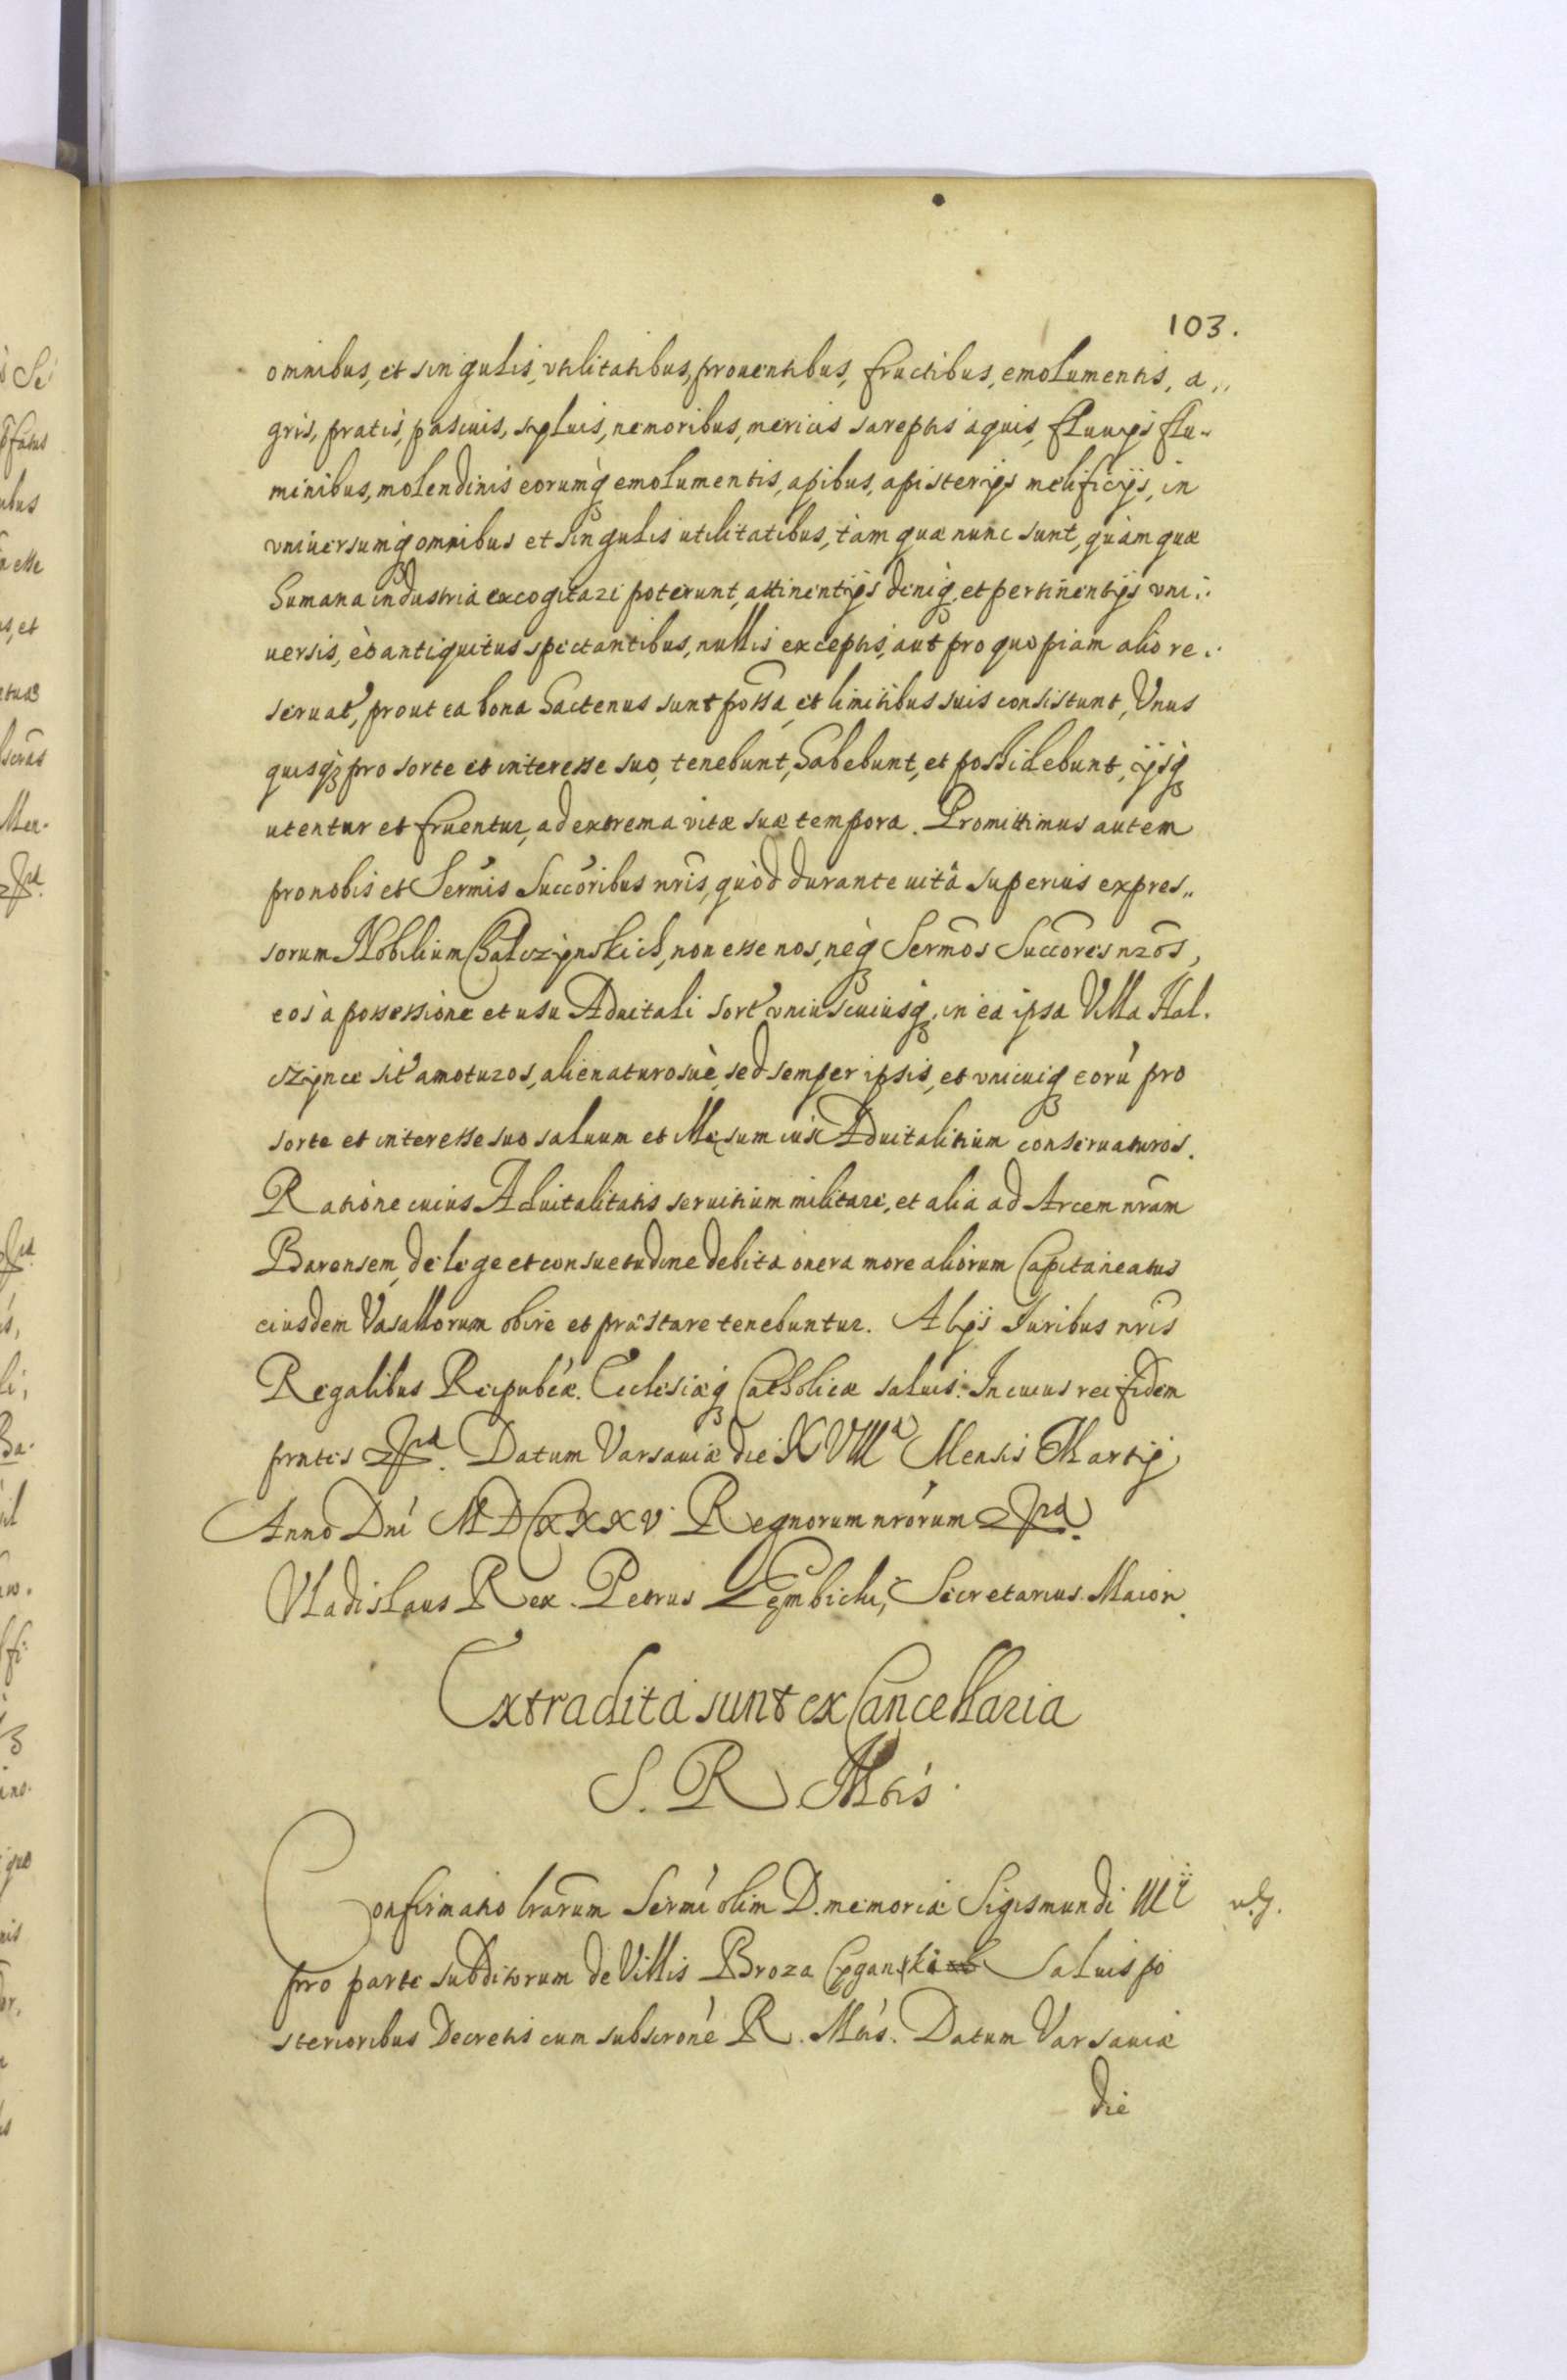 103.
omnibus, et singulis, vtilitatibus, prouentibus, fructibus, emolumentis, a,,
gris, pratis, pascuis, sÿluis, nemoribus, mericis sareptis aquis, fluuÿs flu-
minibus, molendinis eorumq emolumentis, apibus, apisterÿs melificÿs, in
vniuersumq omnibus et singulis utilitatibus, tàm quæ nunc sunt, quàm quæ
humana industria excogitari poterunt, attinentÿs deniq, et pertinentÿs vni:
uersis, eò antiquitus spectantibus, nullis exceptis, aut pro quopiam alio re:
seruat, prout ea bona hactenus sunt possa, et limitibus suis consistunt, Vnus
quisq pro sorte et interesse suo, tenebunt, habebunt, et possidebunt, ijsq
utentur et fruentur, ad extrema vitæ suæ tempora. Promittimus autem
pro nobis et Sermis Succoribus nris, quòd durante uitâ superius expres,,
sorum Nobilium Halczÿnskich, non esse nos, neq Sermos Succores nros,
eos à possessione et usu Aduitali sort vniuscuiusq, in ea ipsa Villa Hal.
czÿnce sit amoturos, alienaturosuè, sed semper ipsis, et vnicuiq eorũ pro
sorte et interesse suo saluum et illæsum ius Aduitalitium conseruaturos.
Ratione cuius Aduitalitatis seruitium militare, et alia ad Arcem nram
Barensem, de lege et consuetudine debita onera more aliorum Capitaneatus
eiusdem Vasallorum obire et præstare tenebuntur. Alÿs Iuribus nris
Regalibus Reipubcæ. Ecclesiæq Catholicæ saluis: In cuius rei fidem
pntes Datum Varsauiæ die XVIII Mensis Martÿ
Anno Dni MDCXXXV. Regnorum nrorum
Vladislaus Rex. Petrus Gembicki, Secretarius Maior.
Extradita sunt ex Cancellaria
S. R. Mtis.
Confirmatio lrarum Sermi olim D. memoriæ Sigismundi III
pro parte subditorum de Villis Broza Cÿganski Saluis po
sterioribus Decretis cum subscrone R. Mtis. Datum Varsauiæ
die